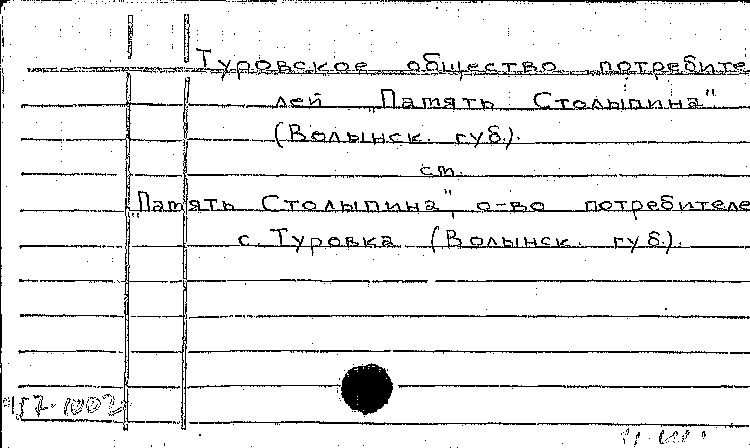 Туровское общество потребите
лей „Память Столыпина"
(Волынск. губ.).
см.
„Память Столыпина", о-во потребителе
с. Туровка (Волынск. губ.).
157-1002